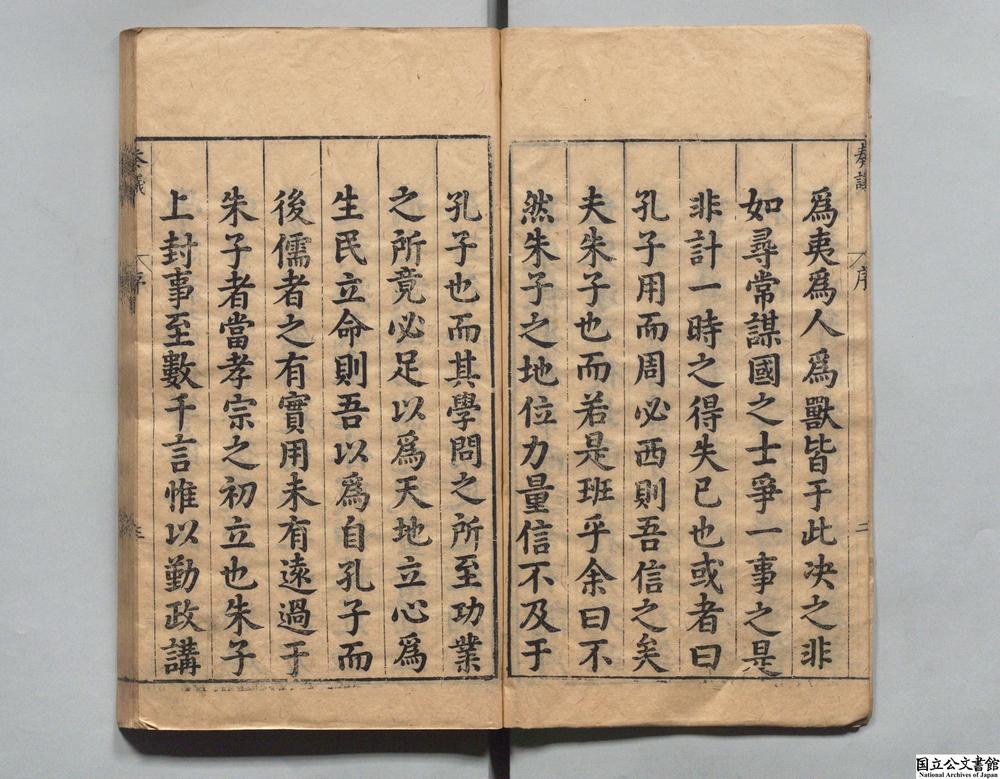 奏議
序
二
爲夷爲人爲獸皆于此决之非
如尋常謀國之士爭一事之是
非計一時之得失已也或者曰
孔子用而周必西則吾信之矣
夫朱子也而若是班乎余曰不
然朱子之地位力量信不及于
孔子也而其學問之所至功業
之所竟必足以爲天地立心爲
生民立命則吾以爲自孔子而
後儒者之有實用未有遠過于
朱子者當孝宗之初立也朱子
上封事至數千言惟以勤政講
奏議
序
国立公文書館
National Archives of Japan